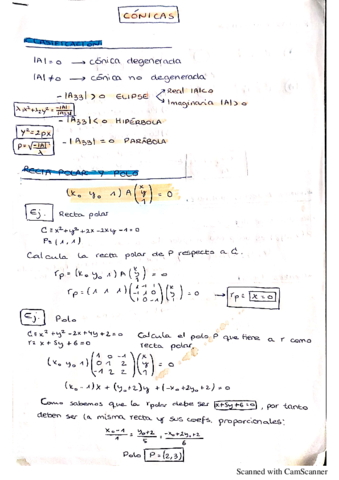 CÓNICAS
CLASIFICACIÓN
|A| = 0 → cónica degenerada
|A| ≠ 0 → cónica no degenerada:
- |A33| > 0 ELIPSE Real |A|<0
Imaginaria |A|>0
λ1x²+λ2y² = -|A|/|A33|
- |A33| < 0 HIPÉRBOLA
y² = 2px
- |A33| = 0 PARÁBOLA
RECTA POLAR Y POLO
(x₀ y₀ 1) A (x y 1) = 0
Ej. Recta polar
C ≡ x²+y²+2x-2xy-1=0
P=(1,1)
Calcula la recta polar de P respecto a C.
rp = (x₀ y₀ 1) A (x y 1) = 0
rp = (1 1 1) (1 -1 1 / -1 1 0 / 1 0 -1) (x y 1) = 0 → rp = x = 0
Ej. Polo
C ≡ x²+y²-2x+4y+2=0 Calcula el polo P que tiene a r como
r ≡ x+5y+6=0 recta polar.
(x₀ y₀ 1) (1 0 -1 / 0 1 2 / -1 2 2) (x y 1) = 0
(x₀-1)x + (y₀+2)y + (-x₀+2y₀+2) = 0
Como sabemos que la rpolar debe ser x+5y+6=0, por tanto
deben ser la misma recta y sus coefs. proporcionales:
x₀-1/1 = y₀+2/5 = -x₀+2y₀+2/6
Polo P=(2,3)
Scanned with CamScanner